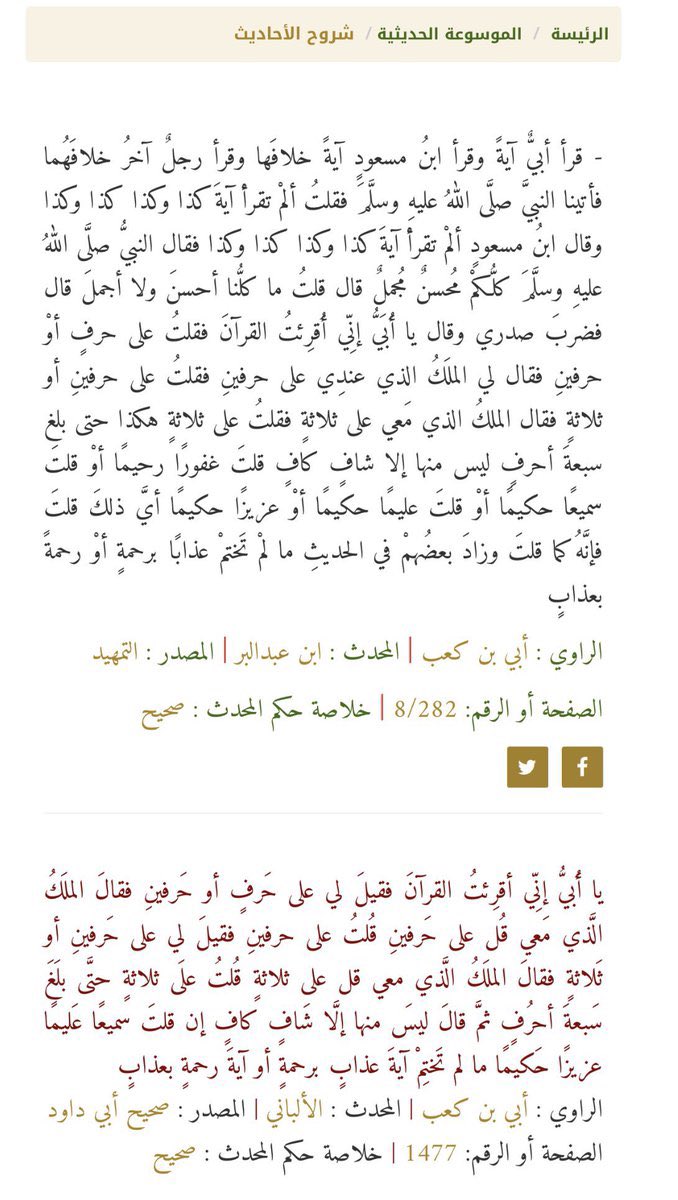 الرئيسة / الموسوعة الحديثية / شروح الأحاديث
- قرأ أبيٌّ آيةً وقرأ ابنُ مسعودٍ آيةً خلافَها وقرأ رجلٌ آخرُ خلافَهُما
فأتينا النبيَّ صلَّى اللهُ عليهِ وسلَّمَ فقلتُ ألمْ تقرأْ آيةَ كذا وكذا كذا وكذا
وقال ابنُ مسعودٍ ألمْ تقرأْ آيةَ كذا وكذا كذا وكذا فقال النبيُّ صلَّى اللهُ
عليهِ وسلَّمَ كلُّكمْ مُحسنٌ مُجملٌ قال قلتُ ما كلُّنا أحسنَ ولا أجملَ قال
فضربَ صدري وقال يا أُبَيُّ إنِّي أُقرِئتُ القرآنَ فقلتُ على حرفٍ أوْ
حرفينِ فقال لي الملَكُ الذي عندِي على حرفينِ فقلتُ على حرفينِ أو
ثلاثةٍ فقال الملكُ الذي مَعي على ثلاثةٍ فقلتُ على ثلاثةٍ هكذا حتى بلغ
سبعةَ أحرفٍ ليس منها إلا شافٍ كافٍ قلتَ غفورًا رحيمًا أوْ قلتَ
سميعًا حكيمًا أوْ قلتَ عليمًا حكيمًا أوْ عزيزًا حكيمًا أيَّ ذلكَ قلتَ
فإنَّهُ كما قلتَ وزادَ بعضُهمْ في الحديثِ ما لمْ تَختمْ عذابًا برحمةٍ أوْ رحمةً
بعذابٍ
الراوي : أبي بن كعب | المحدث : ابن عبدالبر | المصدر : التمهيد
الصفحة أو الرقم: 8/282 | خلاصة حكم المحدث : صحيح
يا أُبيُّ إنِّي أقرِئتُ القرآنَ فقيلَ لي على حَرفٍ أو حَرفينِ فقالَ الملَكُ
الَّذي مَعي قُل على حَرفينِ قُلتُ على حرفينِ فقيلَ لي على حَرفينِ أو
ثَلاثةٍ فقالَ الملَكُ الَّذي معي قل على ثلاثةٍ قُلتُ علَى ثلاثةٍ حتَّى بلَغَ
سَبعةَ أحرُفٍ ثمَّ قالَ ليسَ منها إلَّا شَافٍ كافٍ إن قلتَ سميعًا عَليمًا
عزيزًا حَكيمًا ما لم تَختِمْ آيةَ عذابٍ برحمةٍ أو آيةَ رحمةٍ بعذابٍ
الراوي : أبي بن كعب | المحدث : الألباني | المصدر : صحيح أبي داود
الصفحة أو الرقم: 1477 | خلاصة حكم المحدث : صحيح